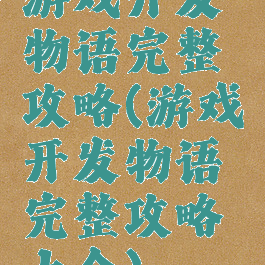 游戏开发
物语完整
攻略(游戏
开发物语
完整攻略
大全)